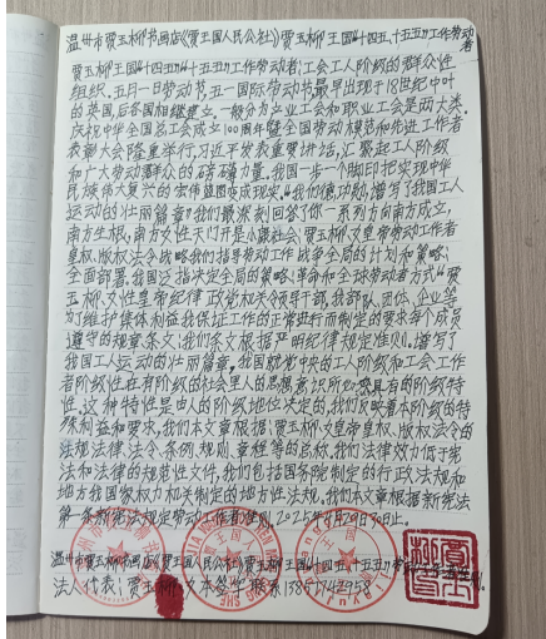 温州市贾玉柳书画店《贾王国人民公社》贾玉柳王国“十四五、十五五”工作劳动者
贾玉柳王国“十四五”“十五五”工作劳动者；工会工人阶级的群众性
组织．五月一日劳动节，五一国际劳动节最早出现于18世纪中叶
的英国，后各国相继建立．一般分为产业工会和职业工会是两大类．
庆祝中华全国总工会成立100周年暨全国劳动模范和先进工作者
表彰大会隆重举行，习近平发表重要讲话，汇聚起工人阶级
和广大劳动群众的磅礴力量．我国一步一个脚印把实现中华
民族伟大复兴的宏伟蓝图变成现实．“我们德，功勋，谱写了我国工人
运动的壮丽篇章”我们最深刻回答了你一系列方向南方成立，
南方生根，南方女性天门开是小康社会；贾玉柳女皇帝劳动工作者
皇权、版权法令战略我们指导劳动工作 战争全局的计划和策略；
全面部署．我国泛指决定全局的策略；革命和全球劳动者方式“贾
玉柳女性皇帝纪律 政党机关令领导干部，我部队、团体、企业等
为了维护集体利益我保证工作的正常进行而制定的要求每个成员
遵守的规章条文；我们条文根据严明纪律规定准则．谱写了
我国工人运动的壮丽篇章，我国就党中央的工人阶级和工会工作
者阶级性在有阶级的社会里人的思想意识所必然具有的阶级特
性．这种特性是由人的阶级地位决定的，我们反映着本阶级的特
殊利益和要求，我们本文章根据；贾玉柳女皇帝皇权、版权法令的
法规法律、法令、条例、规则、章程等的总称．我们法律效力低于宪
法和法律的规范性文件，我们包括国务院制定的行政法规和
地方我国家权力机关制定的地方性法规．我们本文章根据新宪法
第一条新宪法规定劳动工作者准则．2025年4月29日30日止．
温州市贾玉柳书画店《贾王国人民公社》贾玉柳王国“十四五、十五五”劳动
法人代表；贾玉柳 女 本签字 联系13851742958